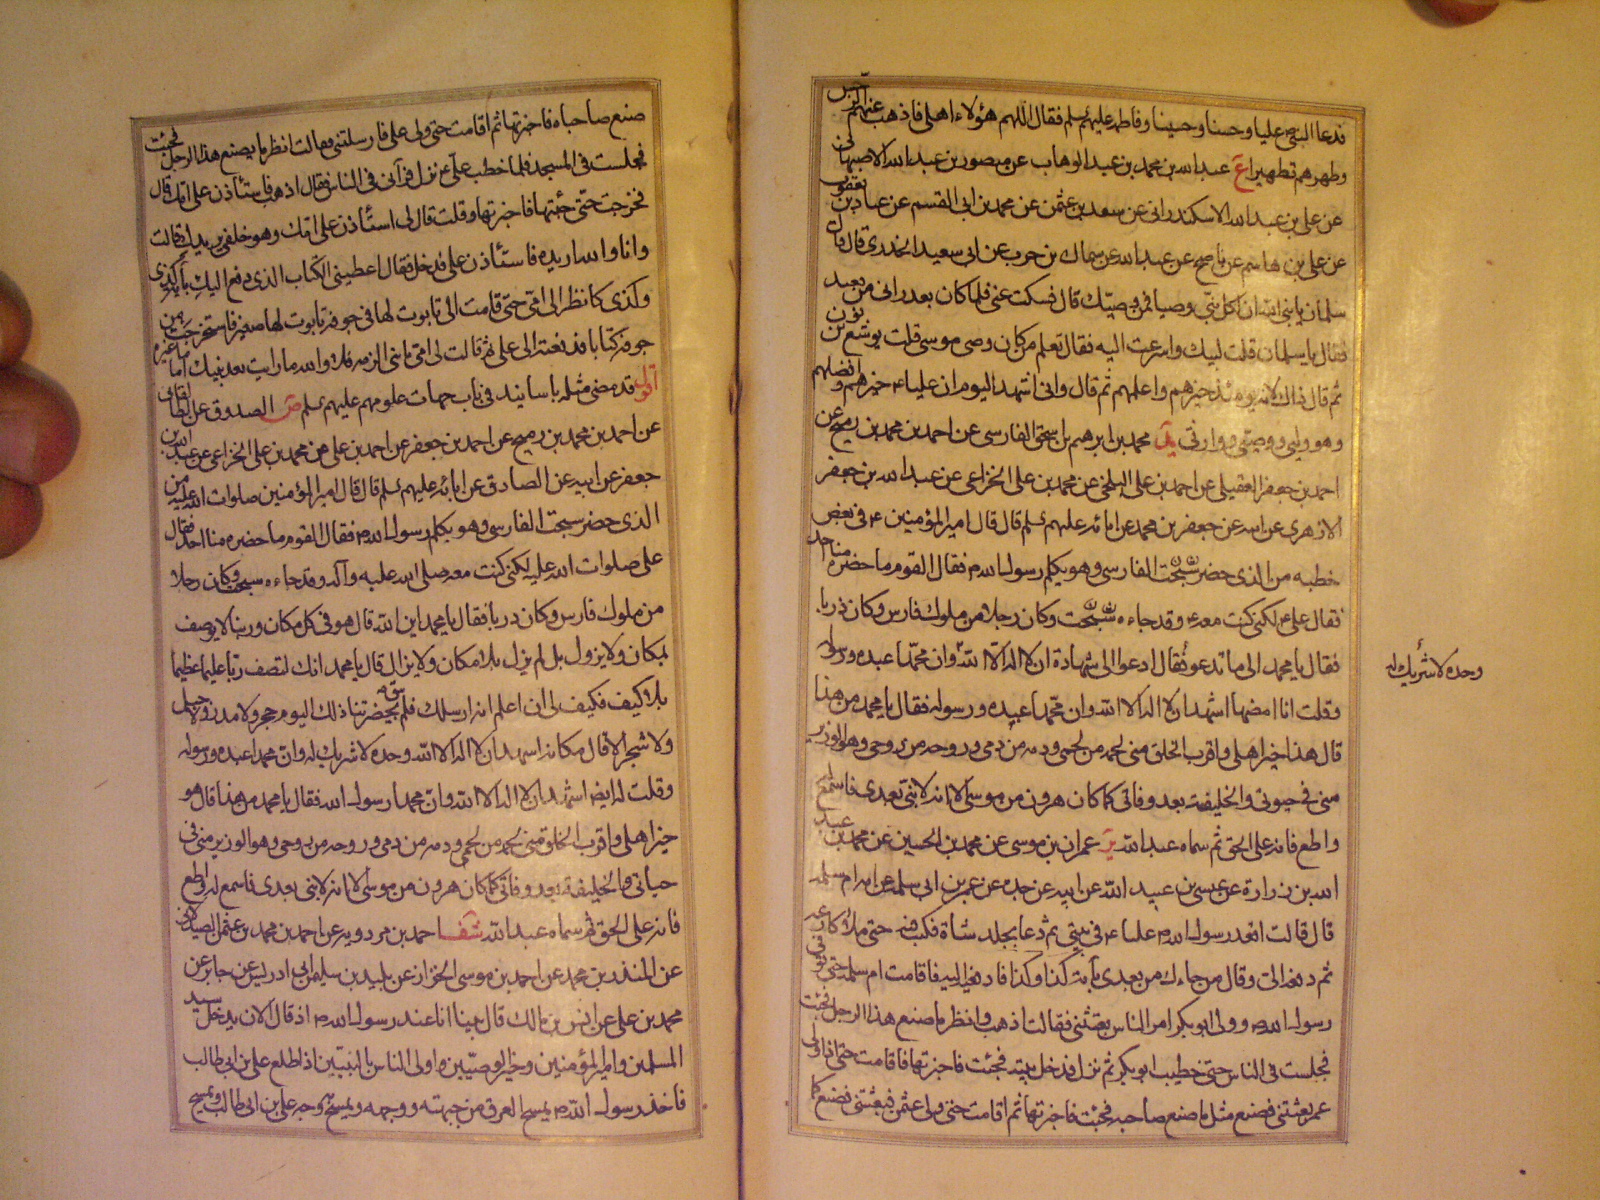 فدعا النبي ص عليا وحسنا وحسينا وفاطمة عليهم سلم فقال اللهم هؤلاء اهلي فاذهب عنهم الرجس
وطهرهم تطهيرا ع عبد الله بن محمد بن عبد الوهاب عن منصور بن عبد الله الاصبهاني
عن علي بن عبد الله الاسكندراني عن سعد بن عثمن عن محمد بن ابي القسم عن عباد بن يعقوب
عن علي بن هاشم عن ناصح عن عبد الله عن سماك بن حرب عن ابي سعيد الخدري قال قال
سلمان يا نبي الله ان لكل نبي وصيا فمن وصيك قال فسكت عني فلما كان بعد راني من بعيد
فقال يا سلمان قلت لبيك واسرعت اليه فقال تعلم من كان وصي موسى قلت يوشع بن نون
ثم قال ذاك لانه يومئذ خيرهم واعلمهم ثم قال واني اشهد اليوم ان عليا ع خيرهم وافضلهم
وهو وليي ووصيي ووارثي يد محمد بن ابرهيم بن اسحق الفارسي عن احمد بن محمد بن رميح عن
احمد بن جعفر العقيلي عن احمد بن علي البلخي عن محمد بن علي الخزاعي عن عبد الله بن جعفر
الازهري عن ابيه عن جعفر بن محمد عن ابائه عليهم سلم قال قال امير المؤمنين ع في بعض
خطبه من الذي حضر سبخت الفارسي وهو يكلم رسول الله ص فقال القوم ما حضره منا احد
فقال علي ع لكني كنت معه ع وقد جاءه سبخت وكان رجلا من ملوك فارس وكان ذربا
فقال يا محمد الى ما تدعو فقال ادعوا الى شهادة ان لا اله الا الله وان محمدا عبده ورسوله
وحده لا شريك له
وقلت انا امضها اشهد ان لا اله الا الله وان محمدا عبده ورسوله فقال يا محمد من هذا
قال هذا خير اهلي واقرب الخلق مني لحمه من لحمي ودمه من دمي وروحه من روحي وهو الوزير
مني في حيوتي والخليفة بعد وفاتي كما كان هرون من موسى الا انه لا نبي بعدي فاسمع
واطع فانه على الحق ثم سماه عبد الله ير عمران بن موسى عن محمد بن الحسين عن محمد بن عبد
الله بن زرارة عن عيسى بن عبيد الله عن ابيه عن جده عن عمر بن ابي سلمة عن امه ام سلمة
قال قالت اقعد رسول الله ص عليا ع في بيتي ثم دعا بجلد شاة فكتب فيه حتى ملا اكارعه
ثم دفعه الي وقال من جاءك من بعدي بآية كذا وكذا فادفعيه اليه فاقامت ام سلمة حتى توفي
رسول الله ص وولي ابو بكر امر الناس بعثتني فقالت اذهب وانظر ما صنع هذا الرجل فجئت
فجلست في الناس حتى خطب ابو بكر ثم نزل فدخل بيته فجئت فاخبرتها فاقامت حتى اذا ولي
عمر بعثتني فصنع مثل ما صنع صاحبه فجئت فاخبرتها ثم اقامت حتى ولي عثمن فبعثتني فصنع كما
صنع صاحباه فاخبرتها ثم اقامت حتى ولي علي فارسلتني فقالت انظر ما يصنع هذا الرجل فجئت
فجلست في المسجد فلما خطب علي ع نزل فرآني في الناس فقال اذهب فاستأذن على امك قال
فخرجت حتى جئتها فاخبرتها وقلت قال لي استأذن على امك وهو خلفي يريدك قالت
وانا والله اريده فاستأذن علي فدخل فقال اعطيني الكتاب الذي دفع اليك بآية كذى
وكذى كانظر الى امي حتى قامت الى تابوت لها في جوفه تابوت لها صغير فاستخرجت من
جوفه كتابا فدفعته الى علي ثم قالت لي امي يا بني الزمه فلا والله ما رايت بعد نبيك اماما غيره
اقول قد مضى مثله باسانيد في باب جهات علومهم عليهم سلم ض الصدوق عن الطالقاني
عن احمد بن محمد بن رميح عن احمد بن جعفر عن احمد بن علي عن محمد بن علي الخزاعي عن عبد الله بن
جعفر عن ابيه عن الصادق عن ابائه عليهم سلم قال قال امير المؤمنين صلوات الله عليه من
الذي حضر سبحت الفارسي وهو يكلم رسول الله ص فقال القوم ما حضره منا احد فقال
علي صلوات الله عليه لكني كنت معه صلى الله عليه وآله وقد جاءه سبحت وكان رجلا
من ملوك فارس وكان دربا فقال يا محمد اين الله قال هو في كل مكان وربنا لا يوصف
بمكان ولا يزول بل لم يزل بلا مكان ولا يزال قال يا محمد انك لتصف ربا عليما عظيما
بلا كيف فكيف لي ان اعلم انه ارسلك فلم يبق بحضرتنا ذلك اليوم حجر ولا مدر ولا جبل
ولا شجر الا قال مكانه اشهد ان لا اله الا الله وحده لا شريك له وان محمدا عبده ورسوله
وقلت له ايضا اشهد ان لا اله الا الله وان محمدا رسول الله فقال يا محمد من هذا قال هو
خير اهلي واقرب الخلق مني لحمه من لحمي ودمه من دمي وروحه من روحي وهو الوزير مني في
حياتي والخليفة بعد وفاتي كما كان هرون من موسى الا انه لا نبي بعدي فاسمع له واطع
فانه على الحق ثم سماه عبد الله شف احمد بن مردويه عن احمد بن محمد بن عثمن الصيدلاني
عن المنذر بن محمد عن احمد بن موسى الخزاز عن بليد بن سليمن ابي ادريس عن جابر عن
محمد بن علي عن انس بن مالك قال بينا انا عند رسول الله ص اذ قال الان يدخل سيد
المسلمين وامير المؤمنين وخير الوصيين واولى الناس بالنبيين اذ اطلع علي بن ابي طالب
فاخذ رسول الله ص يمسح العرق من جبهته ووجهه ويمسح به وجه علي بن ابي طالب ويمسح